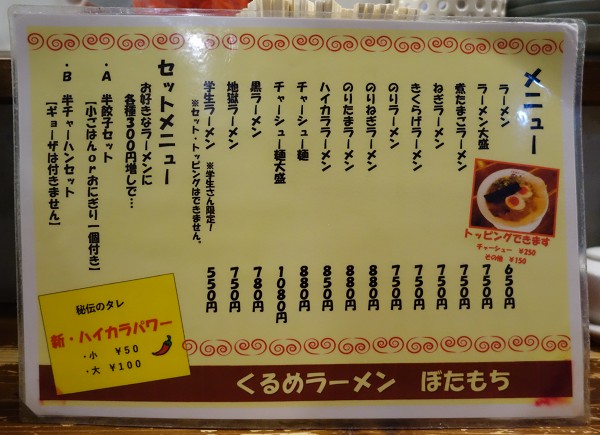 メニュー
ラーメン 650円
ラーメン大盛 750円
煮たまごラーメン 750円
ねぎラーメン 750円
きくらげラーメン 750円
のりラーメン 750円
のりねぎラーメン 880円
のりたまラーメン 880円
ハイカララーメン 850円
チャーシュー麺 880円
チャーシュー麺大盛 1080円
黒ラーメン 780円
地獄ラーメン 750円
学生ラーメン ※学生さん限定! 550円
※セット・トッピングはできません。
トッピングできます
チャーシュー ¥250
その他 ¥150
セットメニュー
お好きなラーメンに
各種300円増しで…
・A 半餃子セット
[小ごはんorおにぎり一個付き]
・B 半チャーハンセット
[ギョーザは付きません]
秘伝のタレ
新・ハイカラパワー
・小 ¥50
・大 ¥100
くるめラーメン ぼたもち